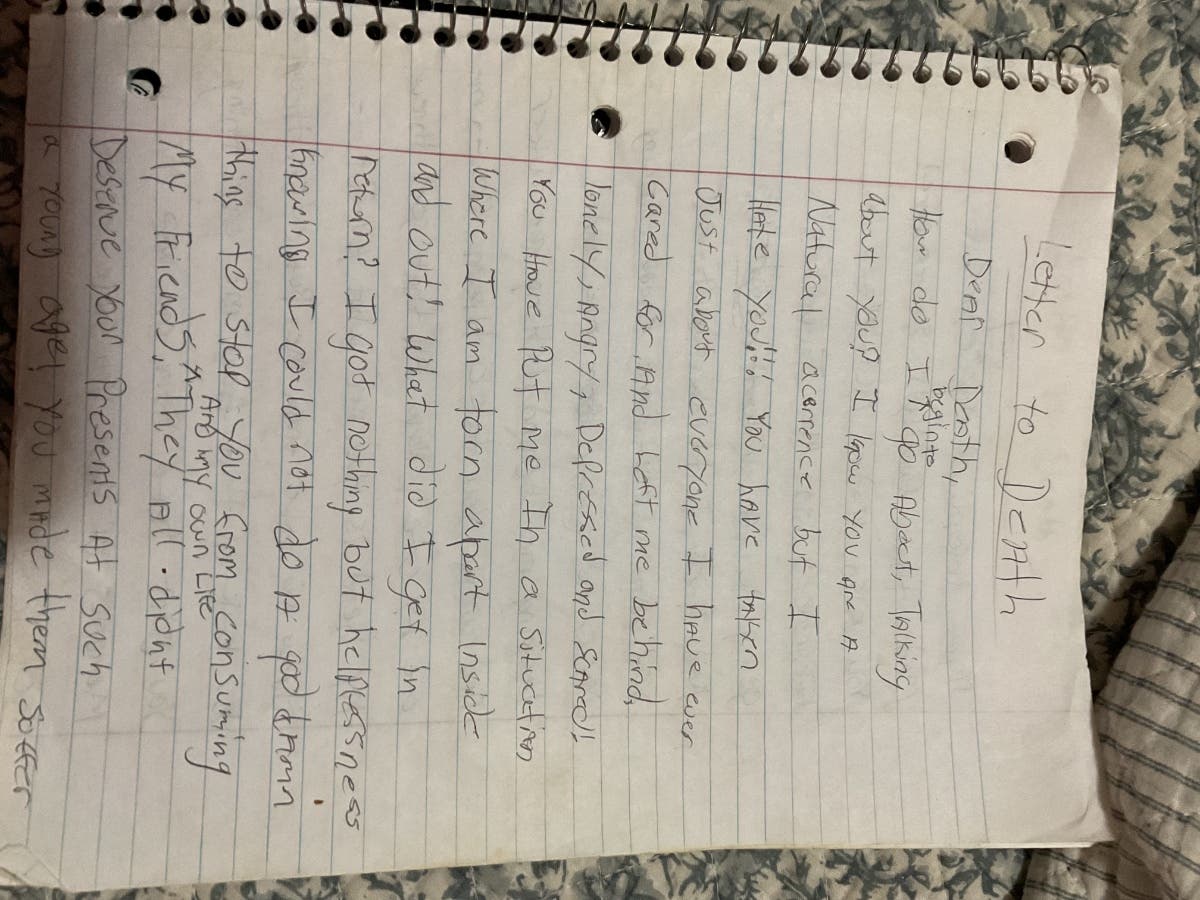 Letter to Death
Dear Death,
How do I begin to go About, Talking
about you? I know you are A
Natural accurrence but I
Hate you!!! You have taken
Just about everyone I have ever
Cared for, And Left me behind,
lonely, Angry, Depressed and scared!
You Have Put me In a situation
Where I am torn apart Inside
and out! What did I get in
return? I got nothing but helplessness
Knowing I could not do A god damn
thing to stop you from consuming
My Friends, And my own Life They All didnt
Deserve your Presents At such
a young age! You made them suffer